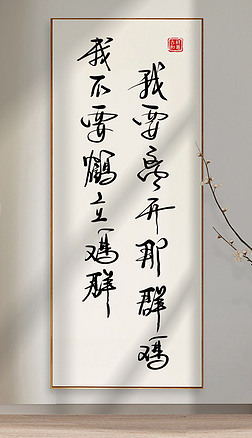 我要离开那群鸡
我不要鶴立鸡群